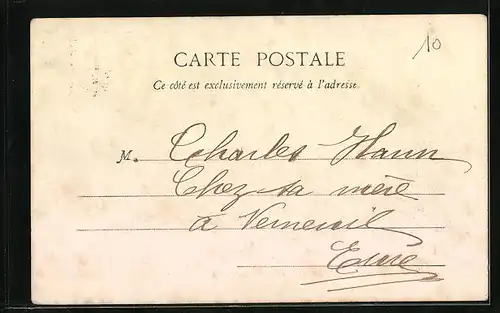 10
CARTE POSTALE
Ce côté est exclusivement réservé à l'adresse.
M. Charles Hann
Chez sa mère
à Verneuil
Eure